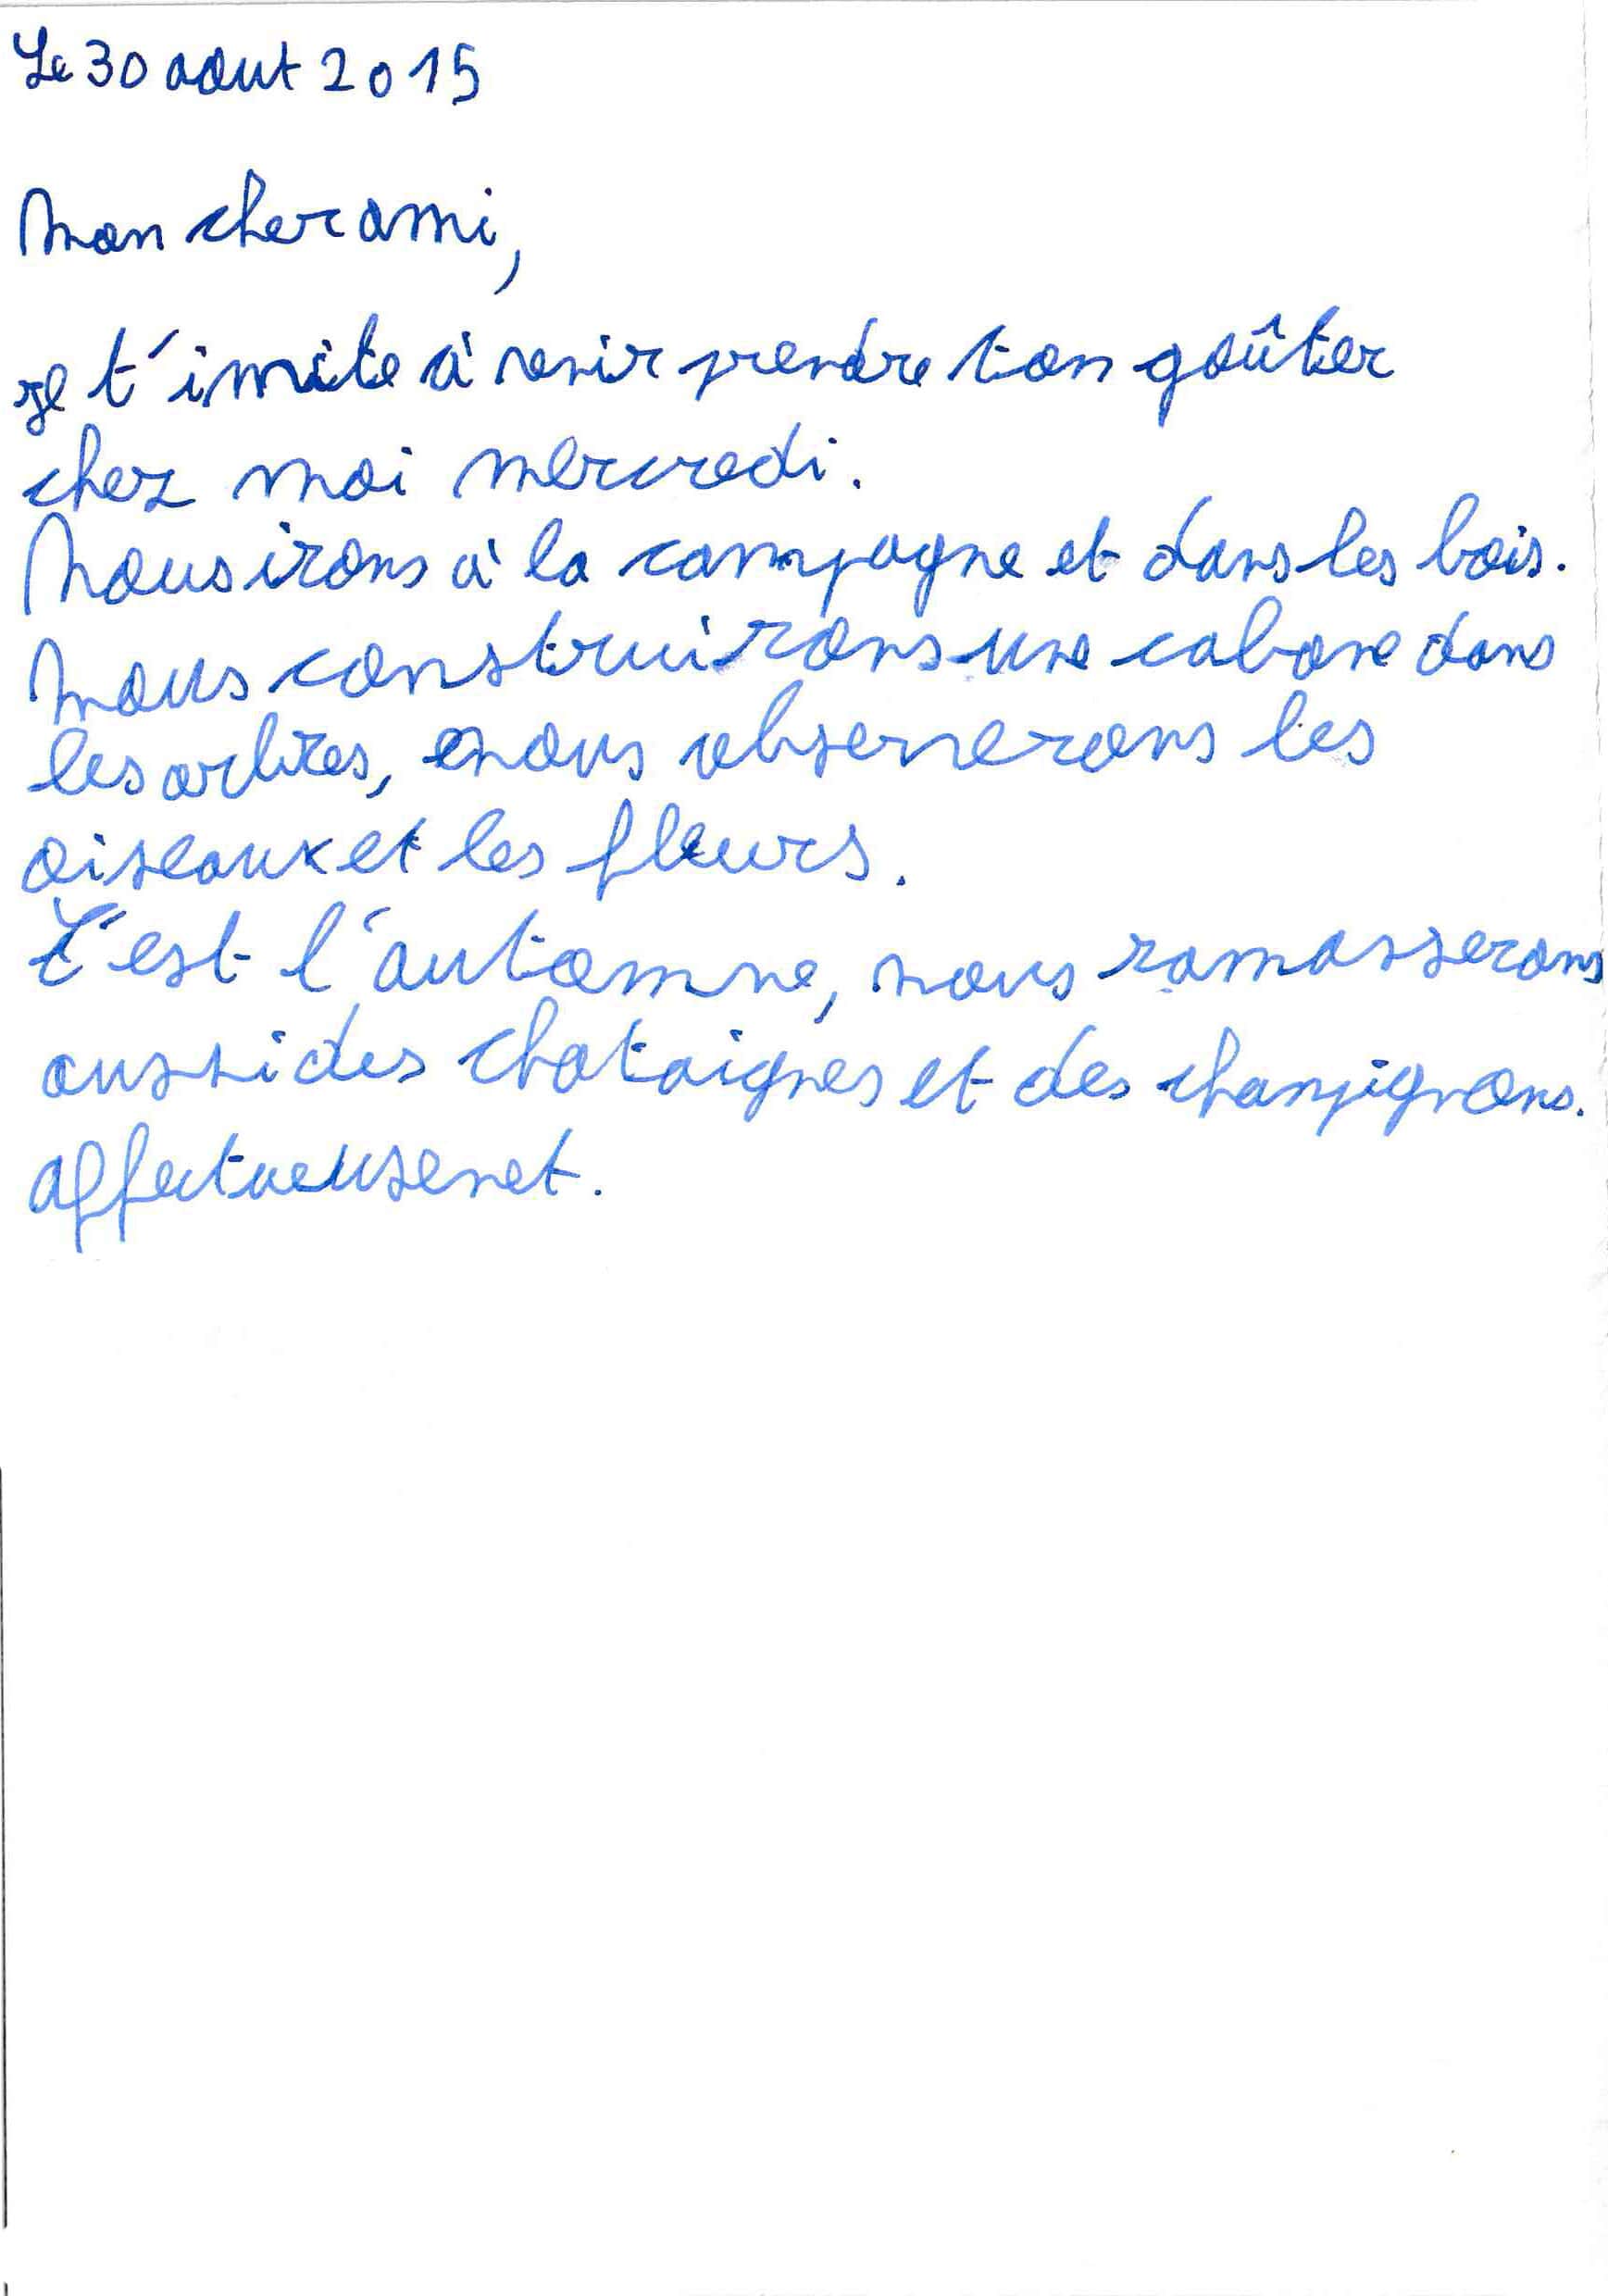 Le 30 aout 2015
Mon cher ami,
je t'invite à venir prendre ton goûter
chez moi mercredi.
Nous irons à la campagne et dans les bois.
Nous construirons une cabane dans
les arbres, nous observerons les
oiseaux et les fleurs.
C'est l'automne, nous ramasserons
aussi des chataignes et des champignons.
affectueusenet.